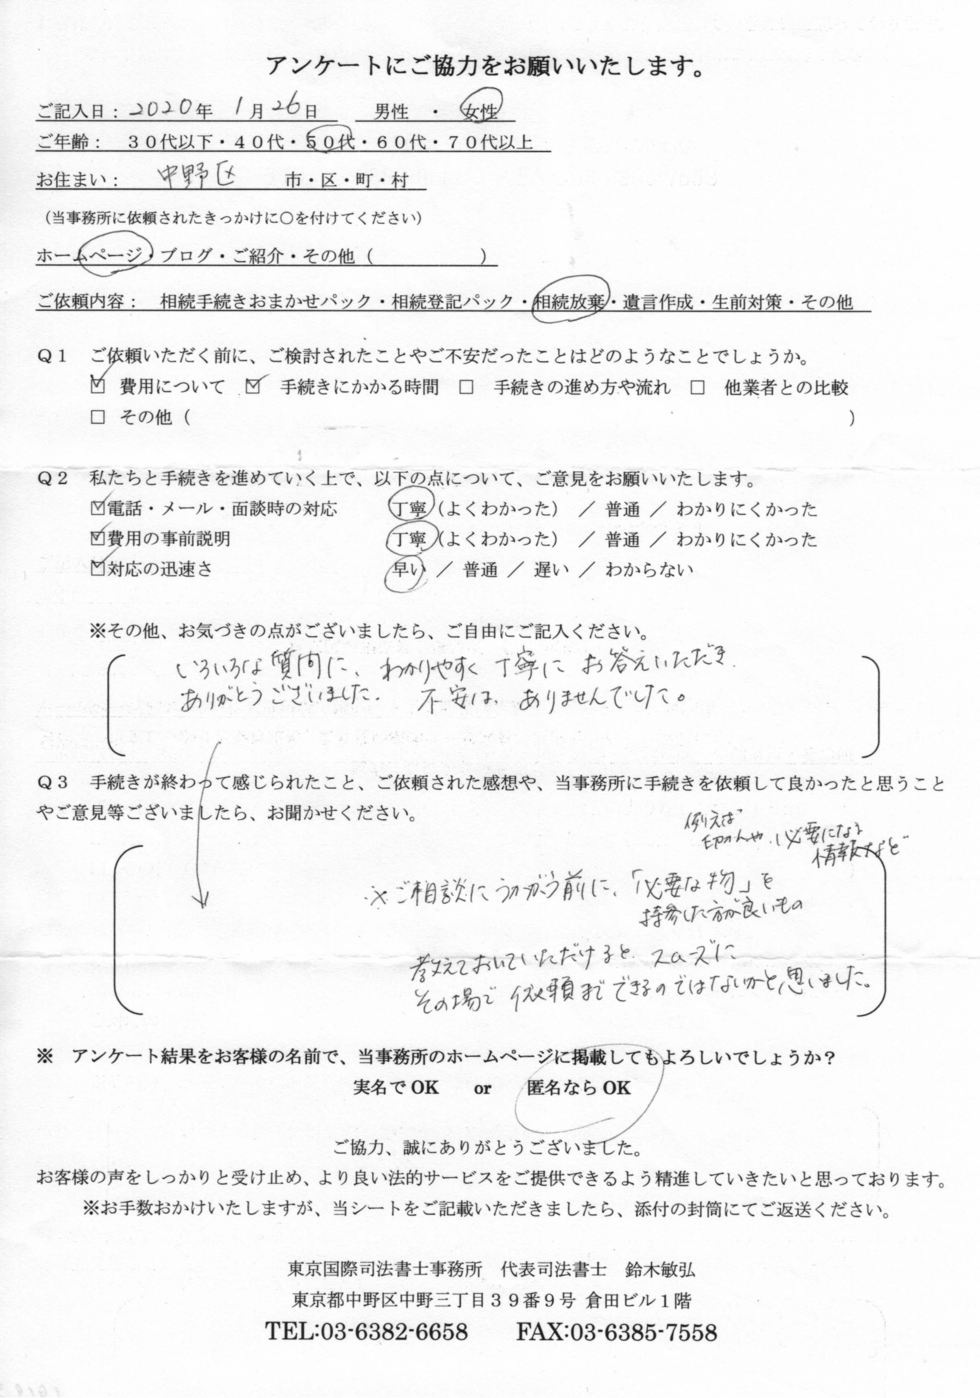 アンケートにご協力をお願いいたします。
ご記入日： 2020年 1月26日 男性 ・ 女性
ご年齢： 30代以下・40代・50代・60代・70代以上
お住まい： 中野区 市・区・町・村
（当事務所に依頼されたきっかけに○を付けてください）
ホームページ・ブログ・ご紹介・その他（ ）
ご依頼内容： 相続手続きおまかせパック・相続登記パック・相続放棄・遺言作成・生前対策・その他
Q1 ご依頼いただく前に、ご検討されたことやご不安だったことはどのようなことでしょうか。
☑ 費用について ☑ 手続きにかかる時間 □ 手続きの進め方や流れ □ 他業者との比較
□ その他（ ）
Q2 私たちと手続きを進めていく上で、以下の点について、ご意見をお願いいたします。
☑電話・メール・面談時の対応 丁寧（よくわかった） ／ 普通 ／ わかりにくかった
☑費用の事前説明 丁寧（よくわかった） ／ 普通 ／ わかりにくかった
☑対応の迅速さ 早い ／ 普通 ／ 遅い ／ わからない
※その他、お気づきの点がございましたら、ご自由にご記入ください。
いろいろな質問に、わかりやすく丁寧にお答えいただき
ありがとうございました。 不安は、ありませんでした。
Q3 手続きが終わって感じられたこと、ご依頼された感想や、当事務所に手続きを依頼して良かったと思うこと
やご意見等ございましたら、お聞かせください。
例えば
印かんや、必要になる
情報など
※ご相談にうかがう前に、「必要な物」を
持参した方が良いもの
教えておいていただけると、スムーズに
その場で依頼までできるのではないかと思いました。
※ アンケート結果をお客様の名前で、当事務所のホームページに掲載してもよろしいでしょうか？
実名でOK or 匿名ならOK
ご協力、誠にありがとうございました。
お客様の声をしっかりと受け止め、より良い法的サービスをご提供できるよう精進していきたいと思っております。
※お手数おかけいたしますが、当シートをご記載いただきましたら、添付の封筒にてご返送ください。
東京国際司法書士事務所 代表司法書士 鈴木敏弘
東京都中野区中野三丁目39番9号 倉田ビル1階
TEL:03-6382-6658 FAX:03-6385-7558